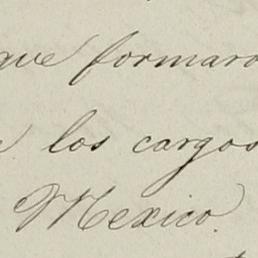 que formaro
los cargos
Mexico.